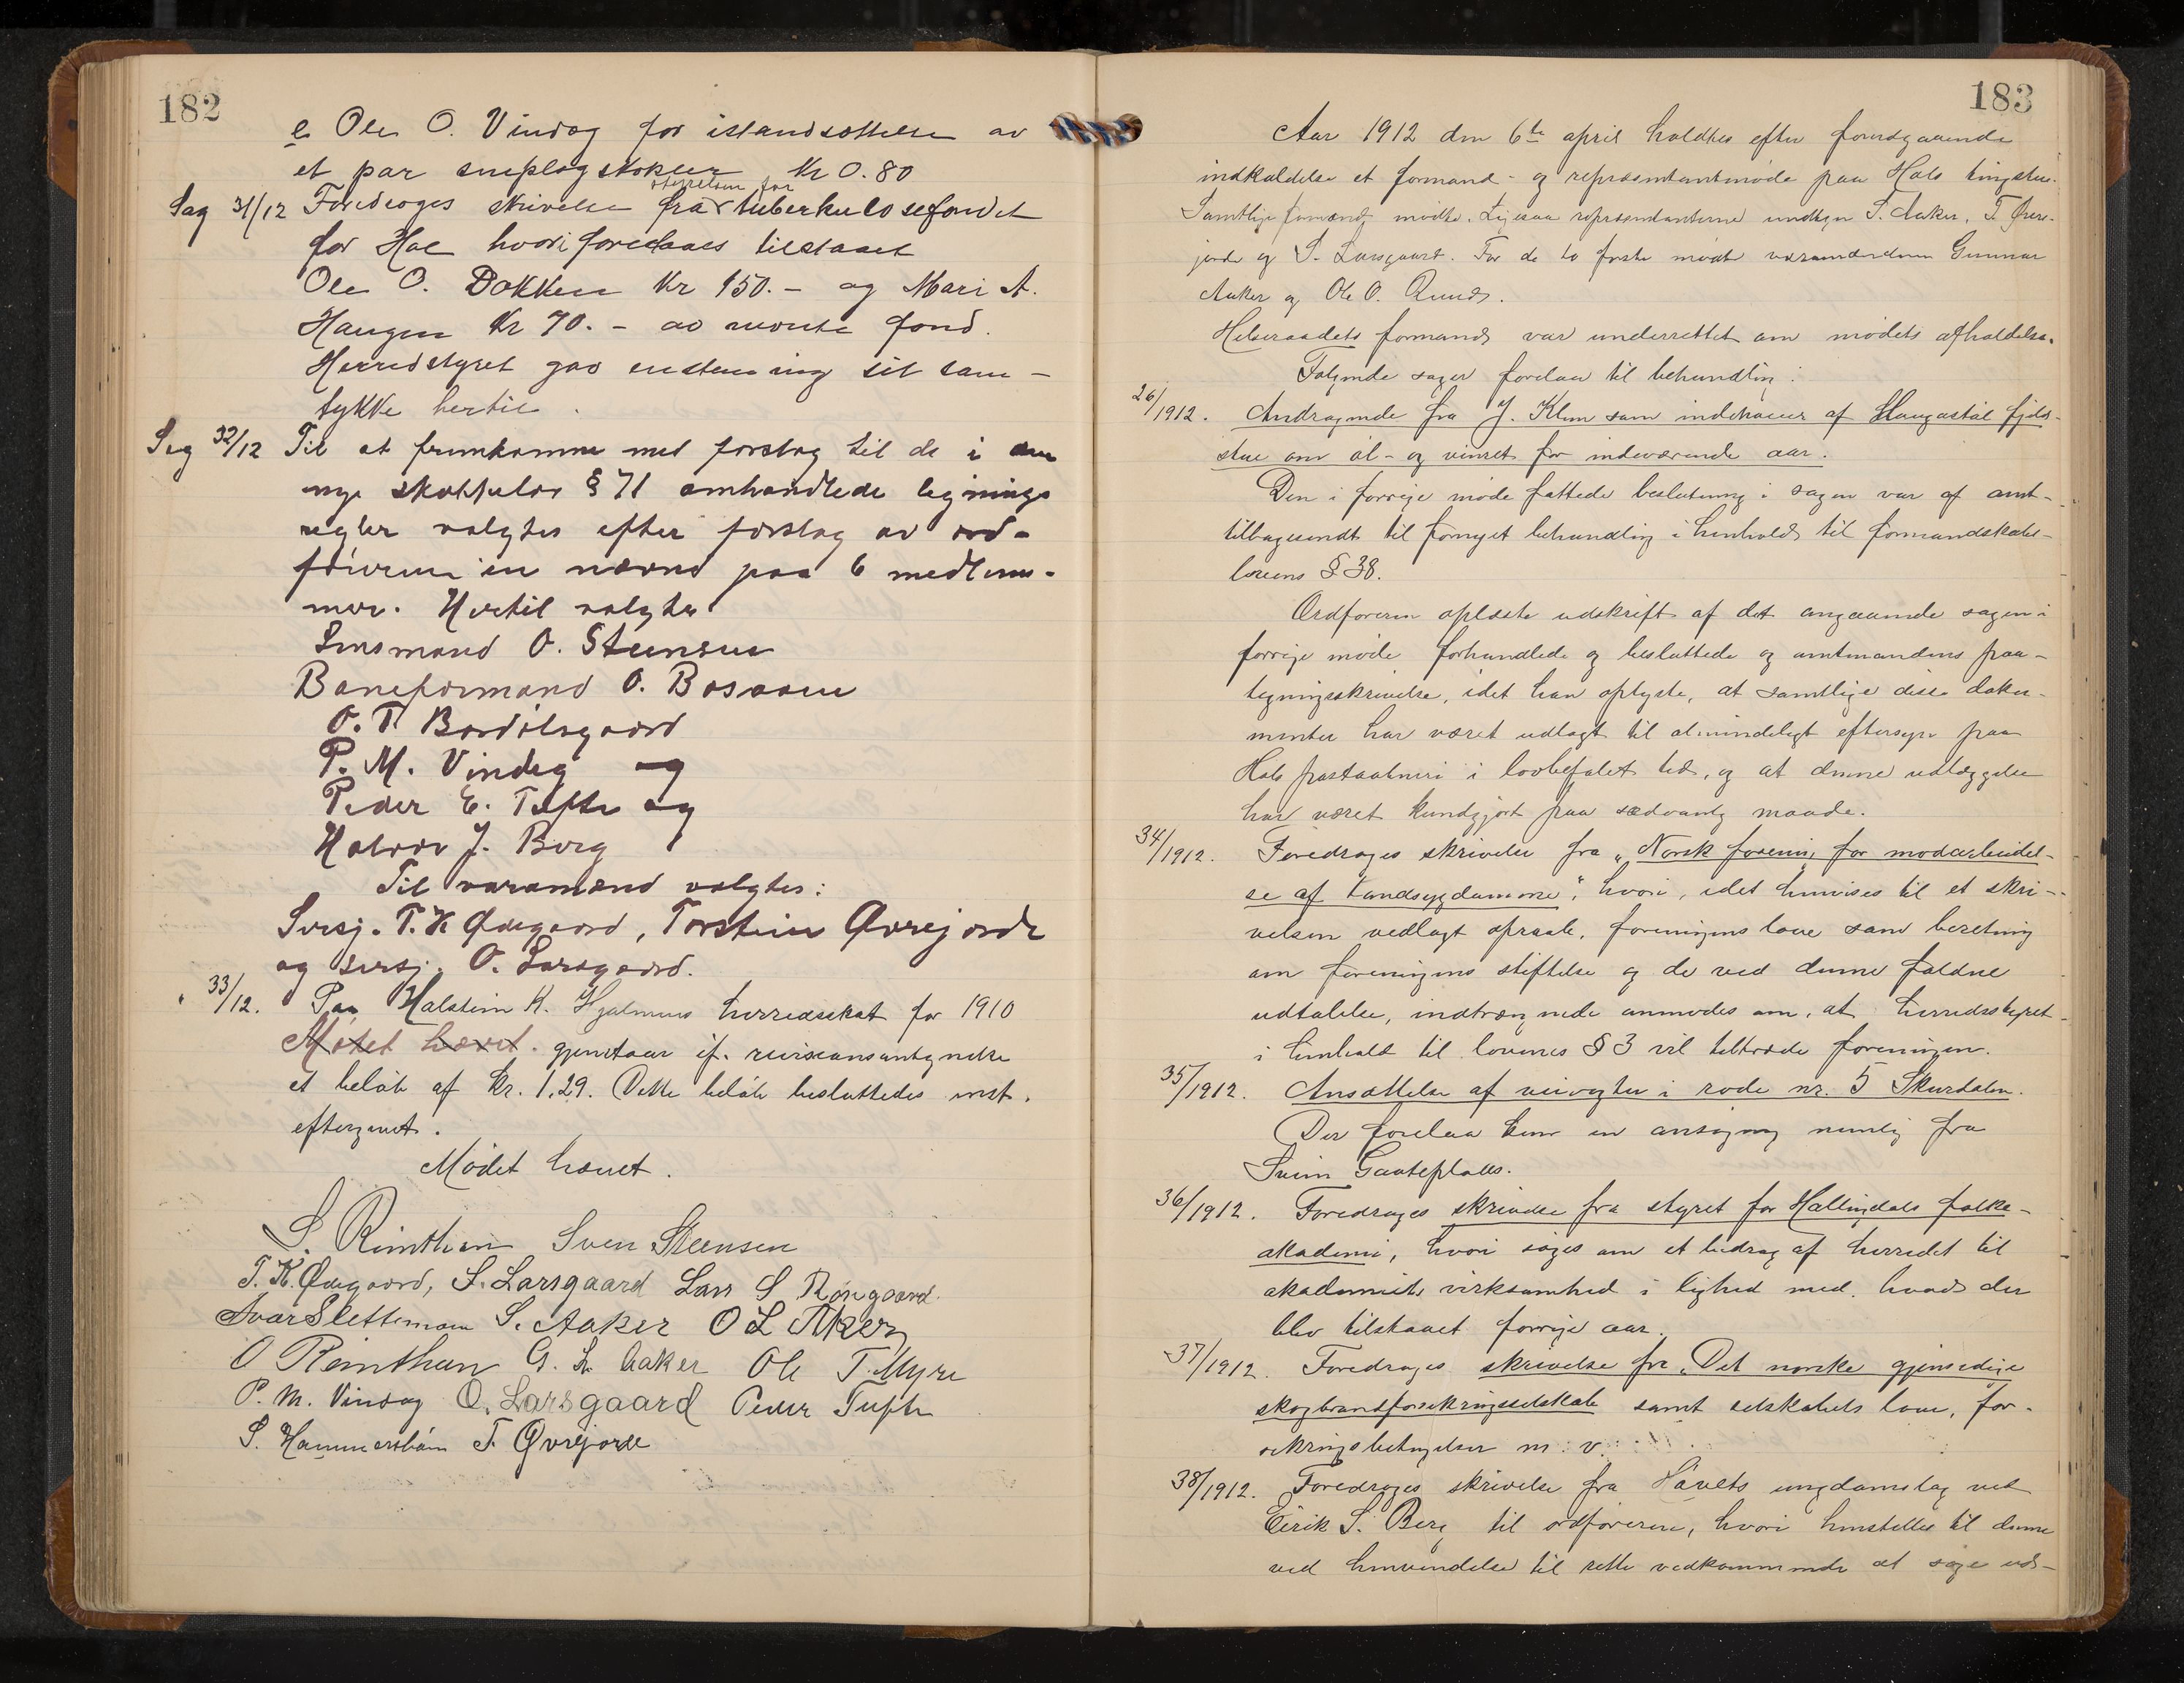 182
e Ole O. Vindeg for istandsættelse av
et par sneplogstokker Kr 0.80
Sag 31/12 Foredroges skrivelse fra styrelsen for tuberkulosefondet
for Hol hvori foreslaaes tilstaaet
Ole O. Dokken Kr 150.- og Mari A.
Haugen Kr 70.- av nevnte fond.
Herredstyret gav enstemmig sit sam-
tykke hertil.
Sag 32/12 Til at fremkomme med forslag til de i den
nye skattelov § 71 omhandlede lignings
regler valgtes efter forslag av ord-
føreren en nævnd paa 6 medlem-
mer. Hertil valgtes
Lensmand O. Steensen
Baneformand O. Bosaaen
O. T. Bardølsgaard
P. M. Vindeg og
Peder E. Tufte og
Halvor J. Berg
Til varamænd valgtes:
Sersj. T. K Ødegaard, Torstein Øvrejorde
og sersj. O. Larsgaard.
" 33/12. Paa Halstein K. Hjelmens herredsskat for 1910
Møtet hævet. gjenstaar if. revisionsantegnelse
et beløb af kr. 1,29. Dette beløb besluttedes enst.
eftergivet.
Mødet hævet.
S. Reinthun Sven Steensen
T. K. Ødegaard, S. Larsgaard Lars S Røngaard.
Ivar Slettemoen S. Aaker O L Aker
O Reinthun G. L. Aaker Ole T. Myre
P. M. Vindeg O. Larsgaard Peder Tufte
S. Hammersbøen T. Øvrejorde
183
Aar 1912 den 6te april holdtes efter forudgaaende
indkaldelse et formand- og repræsentantmøde paa Hols tingstue.
Samtlige formænd mødte. Ligesaa repræsentanterne undtagen S. Aaker, T. Øvre-
jorde og S. Larsgaard. For de to første mødte varamændene Gunnar
Aaker og Ole O. Ruud.
Helseraadets formand var underrettet om mødets afholdelse.
Følgende sager forelaa til behandling:
26/1912. Andragende fra J. Klem som indehaver af Haugastøl fjeld-
stue om øl- og vinret for indeværende aar.
Den i forrige møde fattede beslutning i sagen var af amt-
tilbagesendt til fornyet behandling i henhold til formandskabs-
lovens § 38.
Ordføreren oplæste udskrift af det angaaende sagen i
forrige møde forhandlede og besluttede og amtmandens paa-
tegningsskrivelse, idet han oplyste, at samtlige disse doku-
menter har været udlagt til almindeligt eftersyn paa
Hols postaabneri i lovbefalet tid, og at denne udlæggelse
har været kundgjort paa sædvanlig maade.
34/1912. Foredroges skrivelse fra "Norsk forening for modarbeidel-
se af tandsygdomme", hvori, idet henvises til et skri-
velsen vedlagt opraab, foreningens love samt beretning
om foreningens stiftelse og de ved denne faldne
udtalelse, indtrængende anmodes om, at herredsstyret
i henhold til lovenes § 3 vil tiltræde foreningen.
35/1912. Ansættelse af veivogter i rode nr. 5 Skurdalen.
Der forelaa kun en ansøgning nemlig fra
Svein Gauteplads.
36/1912. Foredroges skrivelse fra styret for Hallingdals folke-
akademi, hvori søges om et bidrag af herredet til
akademiets virksomhed i lighed med, hvad der
blev tilstaaet forrige aar.
37/1912. Foredroges skrivelse fra "Det norske gjensidige
skogbrandforsikringsselskab samt selskabets love, for-
sikringsbetingelser m. v.
38/1912. Foredroges skrivelse fra Hovets ungdomslag ved
Eirik S. Berg til ordføreren, hvori henstilles til denne
ved henvendelse til rette vedkommende at søge ud-